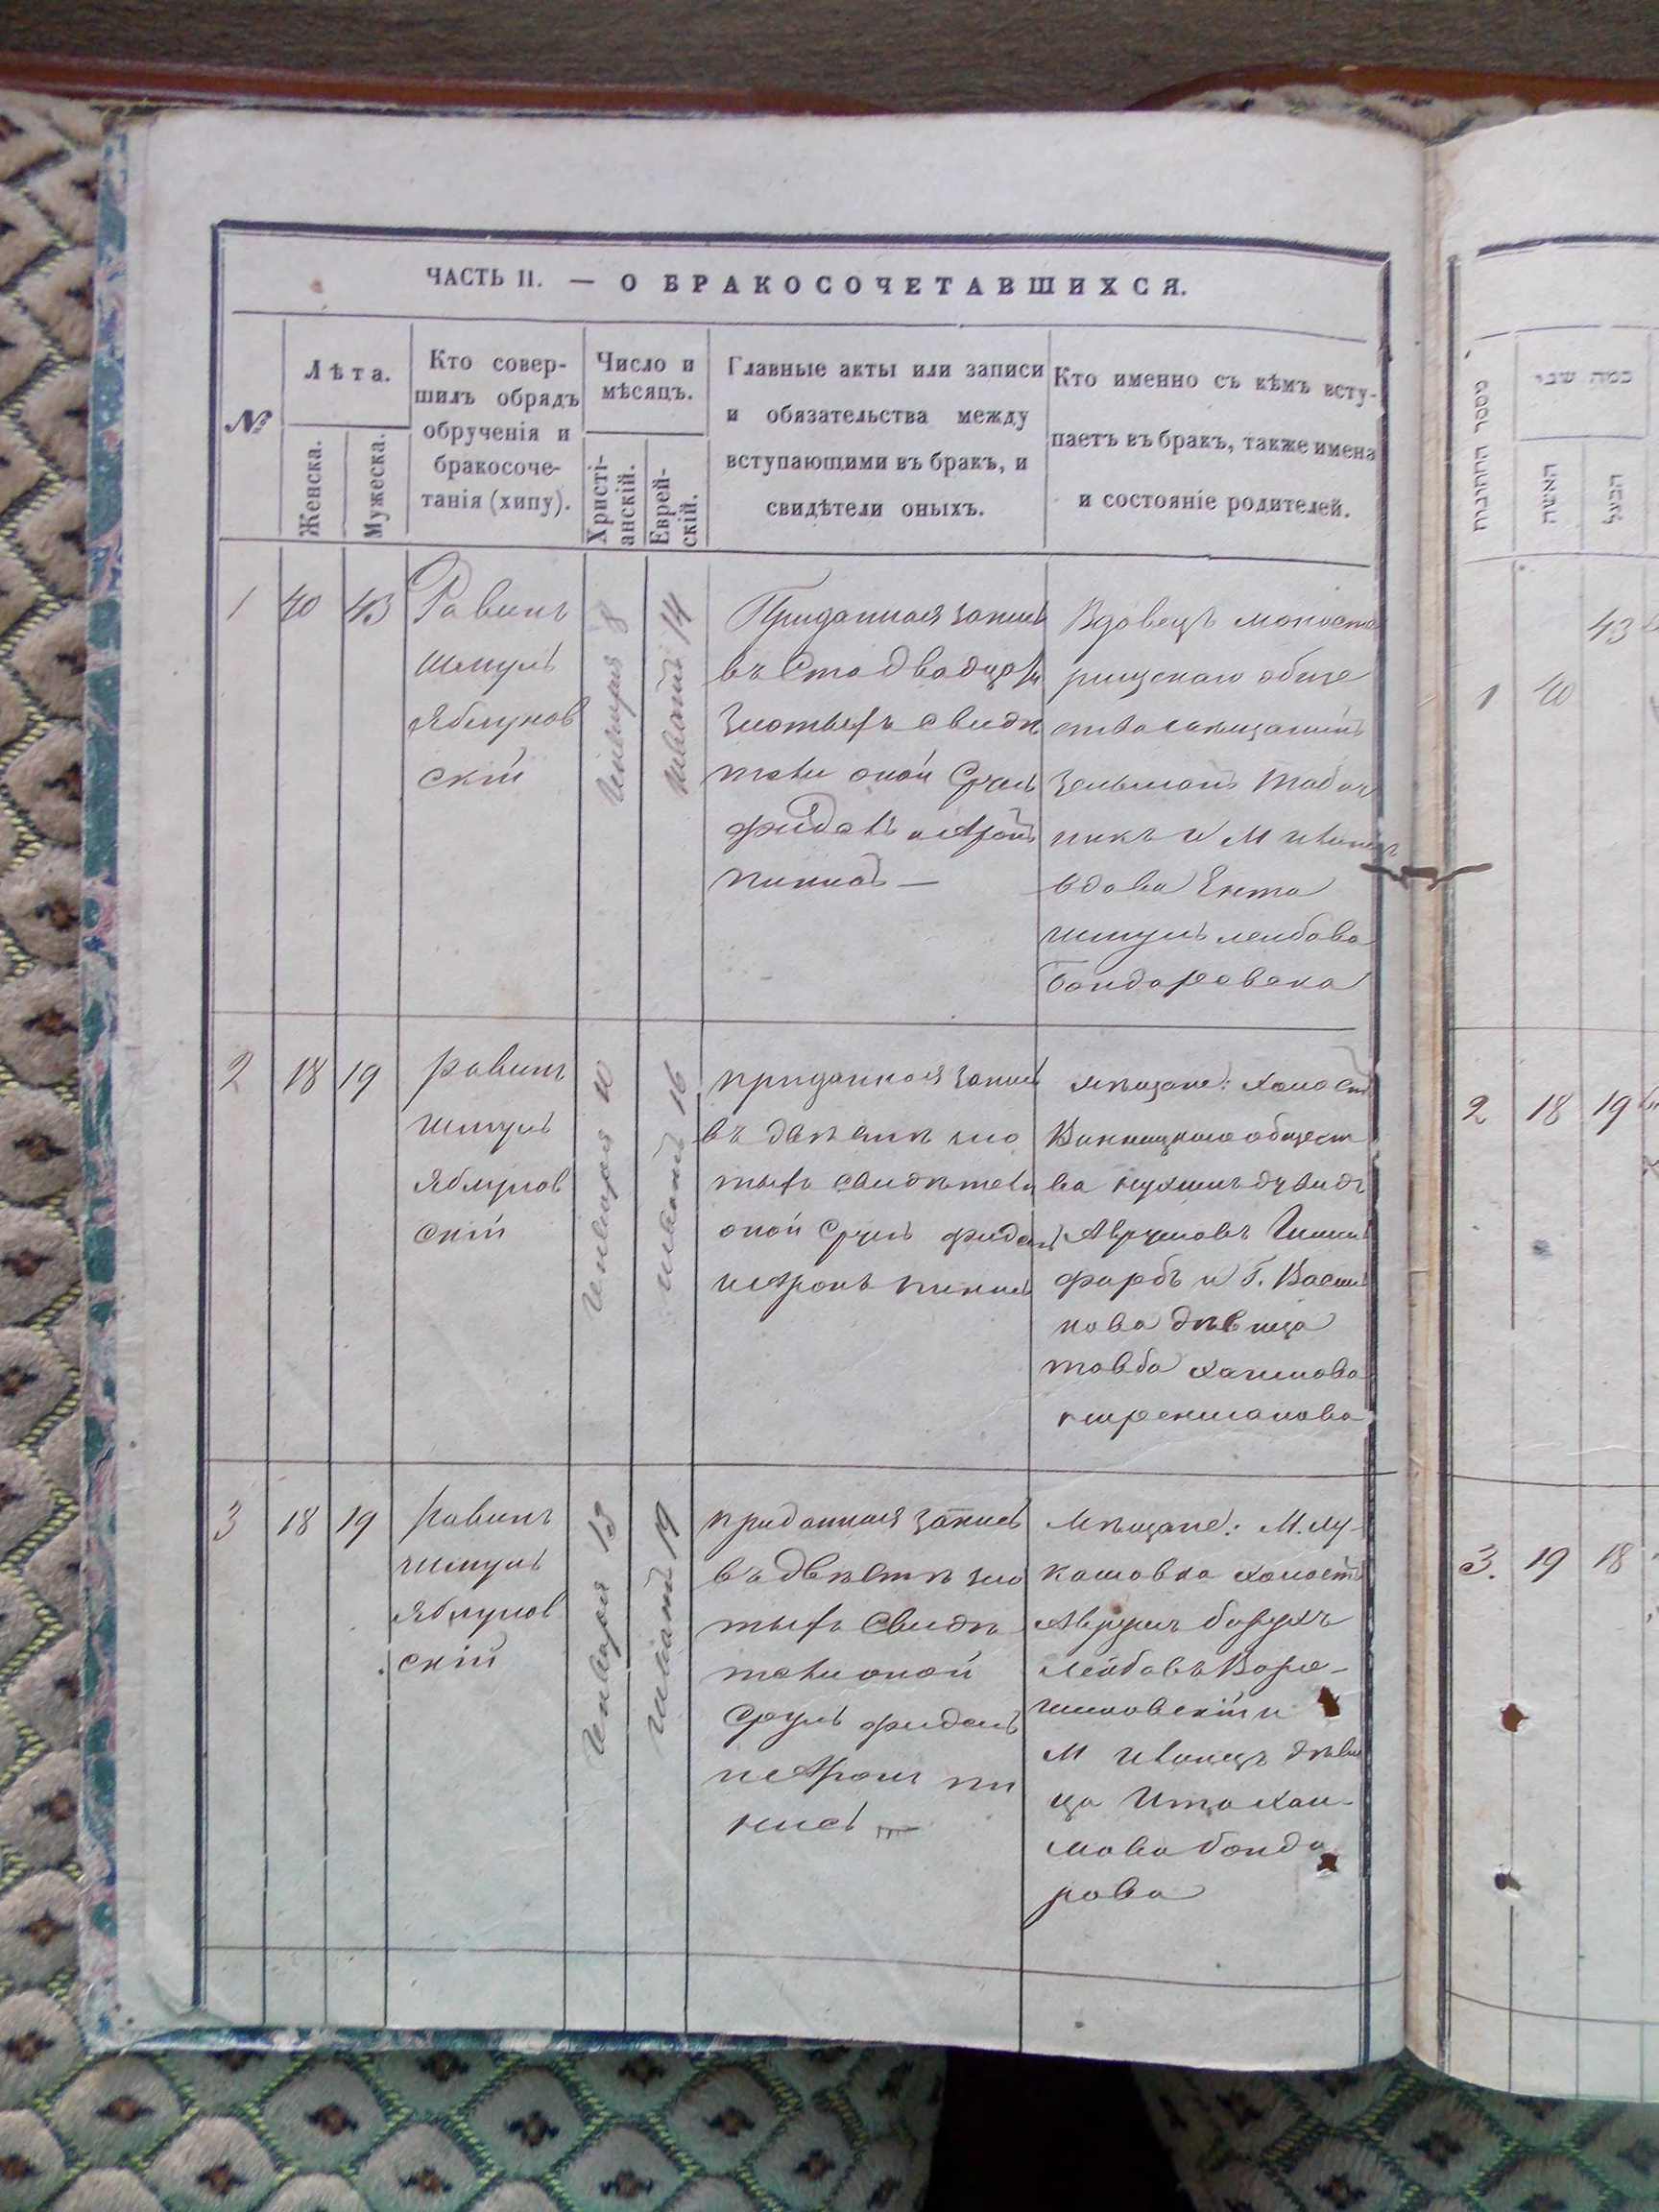 ЧАСТЬ II. — О БРАКОСОЧЕТАВШИХСЯ.
№
Лѣта.
Женска.
Мужеска.
Кто совер-
шилъ обрядъ
обрученія и
бракосоче-
танія (хипу).
Число и
мѣсяцъ.
Христі-
анскій.
Еврей-
скій.
Главные акты или записи
и обязательства между
вступающими въ бракъ, и
свидѣтели оныхъ.
Кто именно съ кѣмъ всту-
паетъ въ бракъ, также имена
и состояніе родителей.
1
40
43
Равинъ
Шмуль
Яблунов
скій
Января 8
Шватъ 14
Приданная запись
въ Сто двадцать
злотыхъ свидѣ
тели оной Сруль
фидель и Аронъ
Вдовецъ монасте
рищскаго обще
ства мѣщанинъ
Зельманъ Табач
никъ и М Иванецъ
вдова Ента
Шмуль лейбова
Бондаровска
2
18
19
равинъ
Шмуль
Яблунов
скій
Января 10
Шватъ 16
приданная запись
въ двѣстѣ зло
тыхъ свидѣтели
оной Сруль фидель
и Аронъ
мѣщане: холостъ
Винницкаго общест
ва
Аврумовъ
фарбъ и Г.
нова дѣвица
товба хаимова
3
18
19
Равинъ
Шмуль
Яблунов
скій
Января 13
Шватъ 19
приданная запись
въ двѣстѣ зло
тыхъ свидѣ
тели оной
Сруль фидель
и Аронъ
Мѣщане: М. Лу-
кашовка холостъ
Аврумъ борухъ
Лейбовъ Воро-
шиловскій и
М Иванецъ дѣви
ца Ита хаи-
мова бонда
рова
כמה שני
האשה
הבעל
1
40
43
2
18
19
3.
19
18